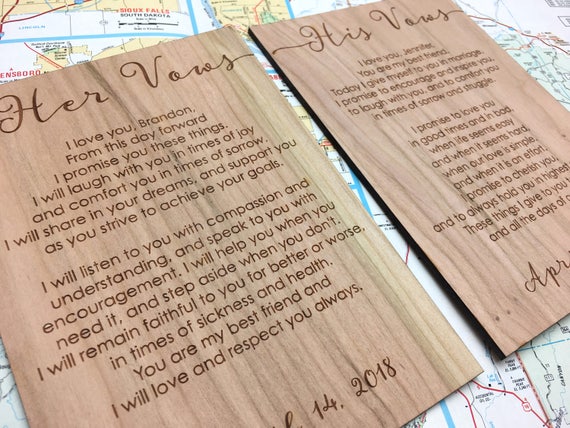 Her Vows
I love you, Brandon,
From this day forward
I promise you these things.
I will laugh with you in times of joy
and comfort you in times of sorrow.
I will share in your dreams, and support you
as you strive to achieve your goals.
I will listen to you with compassion and
understanding, and speak to you with
encouragement. I will help you when you
need it, and step aside when you don't.
I will remain faithful to you for better or worse,
in times of sickness and health.
You are my best friend and
I will love and respect you always.
14, 2018
His Vows
I love you, Jennifer,
You are my best friend.
Today I give myself to you in marriage.
I promise to encourage and inspire you,
to laugh with you, and to comfort you
in times of sorrow and struggle.
I promise to love you
in good times and in bad,
when life seems easy
and when it seems hard,
when our love is simple
and when it is an effort.
I promise to cherish you
and to always hold you in highest
These things I give to you
and all the days of
SIOUX FALLS
SOUTH DAKOTA
LINCOLN